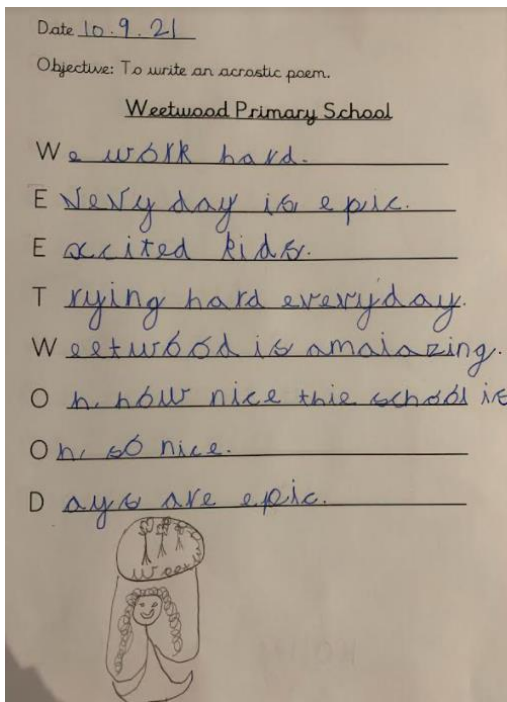 Date 10.9.21
Objective: To write an acrostic poem.
Weetwood Primary School
We work hard.
Every day is epic.
Excited kids.
Trying hard everyday.
Weetwood is amaiazing.
Oh, how nice this school is
Oh, so nice.
Days are epic.